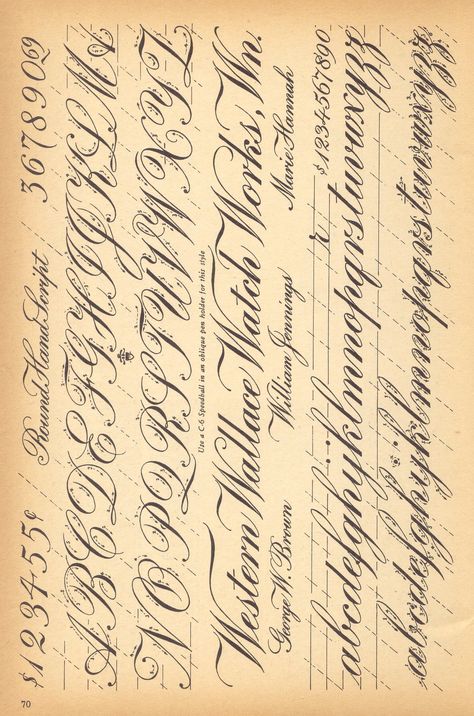 $123455¢ Round Hand Script 3678902
ABCDEFGHIJKLM
NOPQRSTUVWXYZ
Use a C-6 Speedball in an oblique pen holder for this style
Western Wallace Watch Works, Wn.
George W. Brown William Jennings Marie Hannah
$1234567890
abcdefghijklmnopqrstuvwxyzz
abcdefghijklmnopqrstuvwxyzz
70